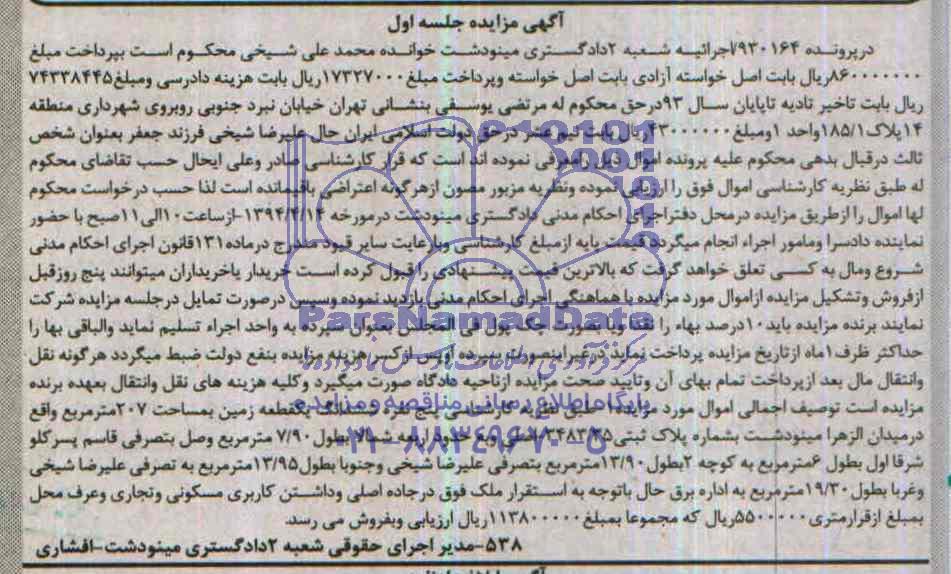 آگهی مزایده جلسه اول
درپرونده ۷۹۳۰۱۶۴اجرائیه شعبه ۲دادگستری مینودشت خوانده محمد علی شیخی محکوم است بپرداخت مبلغ
۸۶۰۰۰۰۰۰۰ریال بابت اصل خواسته آزادی بابت اصل خواسته وپرداخت مبلغ۱۷۳۲۷۰۰۰ریال بابت هزینه دادرسی ومبلغ۷۴۳۳۸۴۴۵
ریال بابت تاخیر تادیه تاپایان سال ۹۳درحق محکوم له مرتضی یوسفی بنشانی تهران خیابان نبرد جنوبی روبروی شهرداری منطقه
۱۴پلاک۱۸۵/۱واحد ۱ومبلغ۴۳۰۰۰۰۰۰ریال بابت نیم عشر درحق دولت اسلامی ایران حال علیرضا شیخی فرزند جعفر بعنوان شخص
ثالث درقبال بدهی محکوم علیه پرونده اموال ذیل رامعرفی نموده اند است که قرار کارشناسی صادر وعلی ایحال حسب تقاضای محکوم
له طبق نظریه کارشناسی اموال فوق را ارزیابی نموده ونظریه مزبور مصون ازهرگونه اعتراضی باقیمانده است لذا حسب درخواست محکوم
لها اموال را ازطریق مزایده درمحل دفتراجرای احکام مدنی دادگستری مینودشت درمورخه ۱۳۹۴/۴/۱۴-ازساعت۱۰الی۱۱صبح با حضور
نماینده دادسرا ومامور اجراء انجام میگردد قیمت پایه ازمبلغ کارشناسی وبارعایت سایر قیود مندرج درماده۱۳۱قانون اجرای احکام مدنی
شروع ومال به کسی تعلق خواهد گرفت که بالاترین قیمت پیشنهادی را قبول کرده است خریدار یاخریداران میتوانند پنج روزقبل
ازفروش وتشکیل مزایده ازاموال مورد مزایده با هماهنگی اجرای احکام مدنی بازدید نموده وسپس درصورت تمایل درجلسه مزایده شرکت
نمایند برنده مزایده باید۱۰درصد بهاء را نقدا ویا بصورت چک پول فی المجلس بعنوان سپرده به واحد اجراء تسلیم نماید والباقی بها را
حداکثر ظرف۱ماه ازتاریخ مزایده پرداخت نماید درغیراینصورت سپرده اوپس ازکسرهزینه مزایده بنفع دولت ضبط میگردد هرگونه نقل
وانتقال مال بعد ازپرداخت تمام بهای آن وتایید صحت مزایده ازناحیه دادگاه صورت میگیرد وکلیه هزینه های نقل وانتقال بعهده برنده
مزایده است توصیف اجمالی اموال مورد مزایده: طبق کارشناسی پنج نفره ششدانگ یکقطعه زمین بمساحت ۲۰۷مترمربع واقع
درمیدان الزهرا مینودشت بشماره پلاک ثبتی اصلی حدود اربعه شمالا بطول۷/۹۰ مترمربع وصل بتصرفی قاسم پسرکلو
شرقا اول بطول ۶مترمربع به کوچه ۲بطول۱۳/۹۰مترمربع بتصرفی علیرضا شیخی وجنوبا بطول۱۳/۹۵مترمربع به تصرفی علیرضا شیخی
وغربا بطول۱۹/۳۰مترمربع به اداره برق حال باتوجه به استقرار ملک فوق درجاده اصلی وداشتن کاربری مسکونی وتجاری وعرف محل
بمبلغ ازقرارمتری۵۵۰۰۰۰۰ریال که مجموعا بمبلغ۱۱۳۸۰۰۰۰۰ریال ارزیابی وبفروش می رسد.
۵۳۸-مدیر اجرای حقوقی شعبه ۲دادگستری مینودشت-افشاری
ParsNamadData
پایگاه اطلاع رسانی مناقصه و مزایده
۰۲۱-۸۸۳۴۹۶۷۰-۵